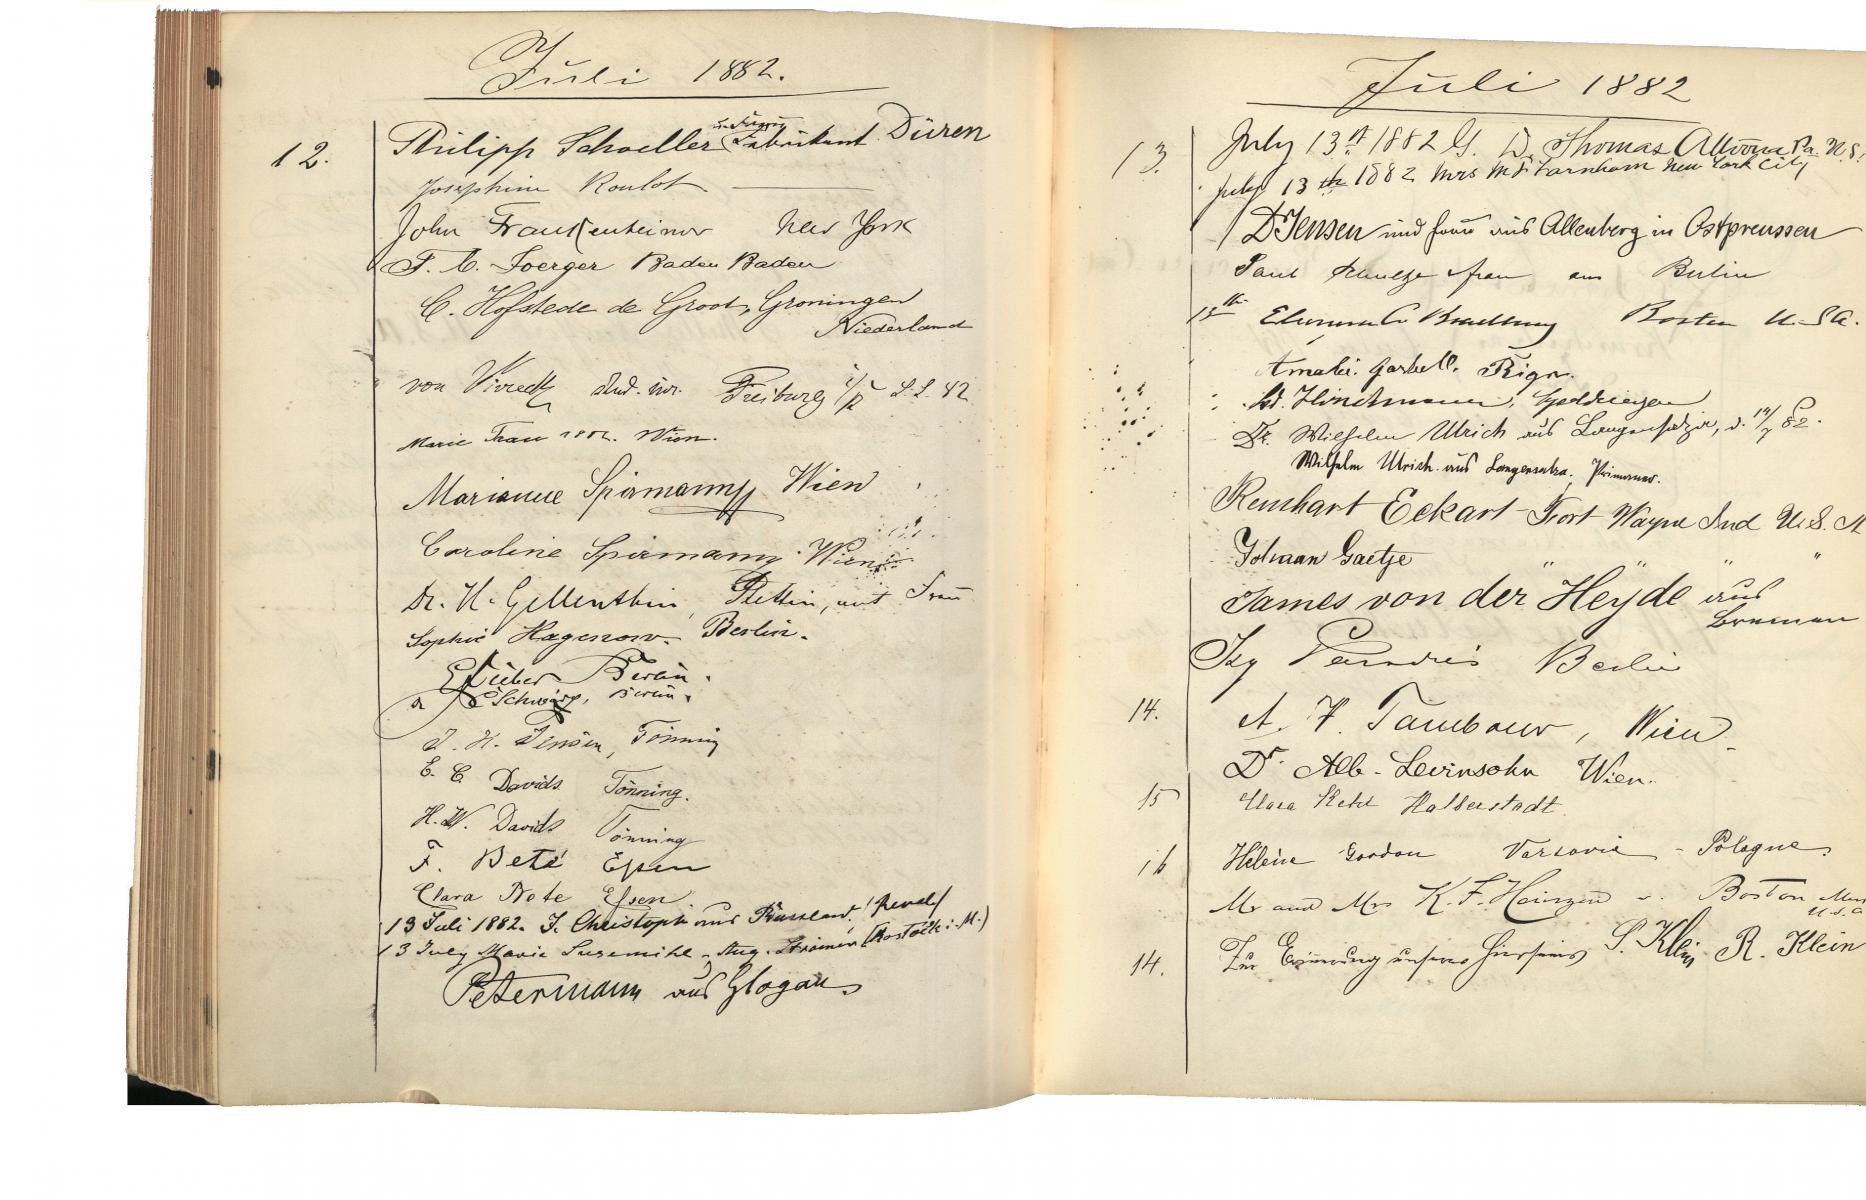 Juli 1882.
12.
Philipp Schoeller Fabrikant Düren
Josephine Roulot
John Frankenheimer New York
F. C. Foerger Baden Baden
C. Hofstede de Groot, Groningen
Niederland
von stud. iur. Freiburg i/B S.S. 82
Marie Wien.
Marianne Spirmann Wien
Caroline Spirmann Wien
Dr. H. Gellenthin, Stettin, mit Frau
Sophie Hagenow. Berlin.
Berlin.
Berlin.
J. H. Jensen, Tönning
E. C. Davids Tönning.
H. W. Davids Tönning
F. Essen
Clara Essen
13 Juli 1882. J. Christoph aus Russland. (Reval)
13 July Marie Susemihl - Aug. (Rostock i. M.)
Petermann aus Glogau
Juli 1882
13.
July 13th 1882 G. D. Thomas Altoona Pa. U.S.
July 13th 1882 Mrs Farnham New York City
Dr Jensen und Frau aus Allenberg in Ostpreussen
Paul Schultze Frau aus Berlin
13th Boston U.S.A.
Amalie Riga.
Dr. Wilhelm Ulrich aus Langensalza, d. 14/7 82.
Wilhelm Ulrich aus Langensalza, Primaner.
Reinhart Eckart Fort Wayne Ind U.S.A
Johman Gaetje " " "
James von der Heyde aus
Bremen
Berlin
14.
A. V. Tambour, Wien
Dr. Alb. Levinsohn Wien.
15
Clara Halberstadt
16
Hélène Gordon Varsovie - Pologne.
Mr and Mrs K. F. Heinzen Boston Mass
U.S.A
14.
Zur Erinnerung unseres Hierseins S. Klein R. Klein